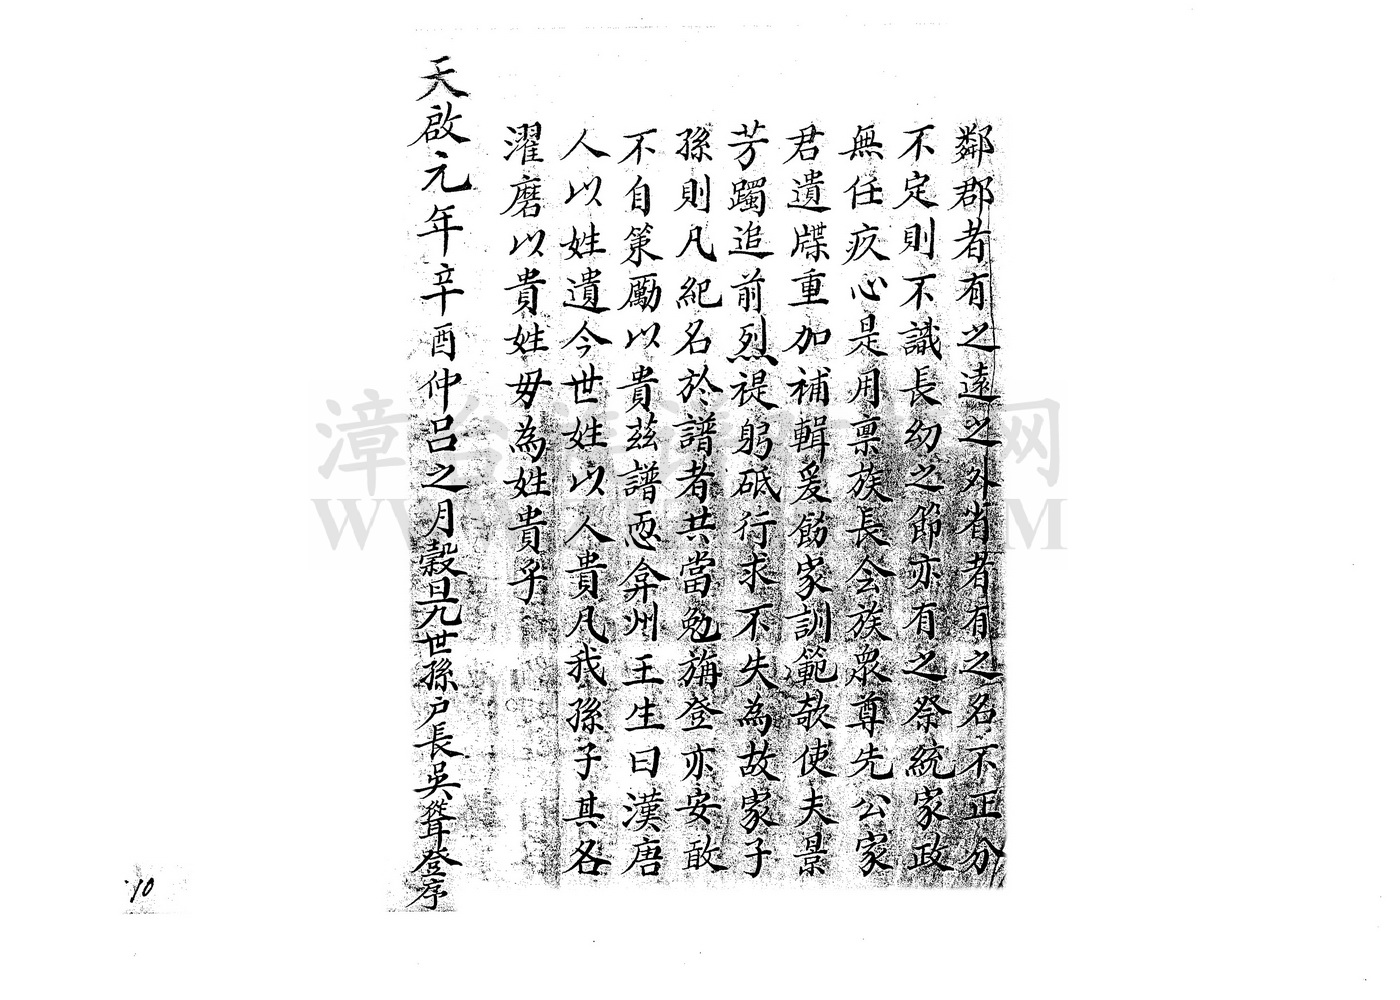 鄰郡者有之遠之外省者有之名不正分
不定則不識長幼之節亦有之祭統家政
無任疚心是用禀族長会族衆尊先公家
君遺牒重加補輯爰飭家訓範欹使夫景
芳躅追前烈禔躬砥行求不失為故家子
孫則凡紀名於譜者共當勉旃登亦安敢
不自策勵以貴茲譜恧弇州王生曰漢唐
人以姓遺今世姓以人貴凡我孫子其各
濯磨以貴姓毋為姓貴乎
天啟元年辛酉仲吕之月穀旦九世孫户長吳聳登序
10